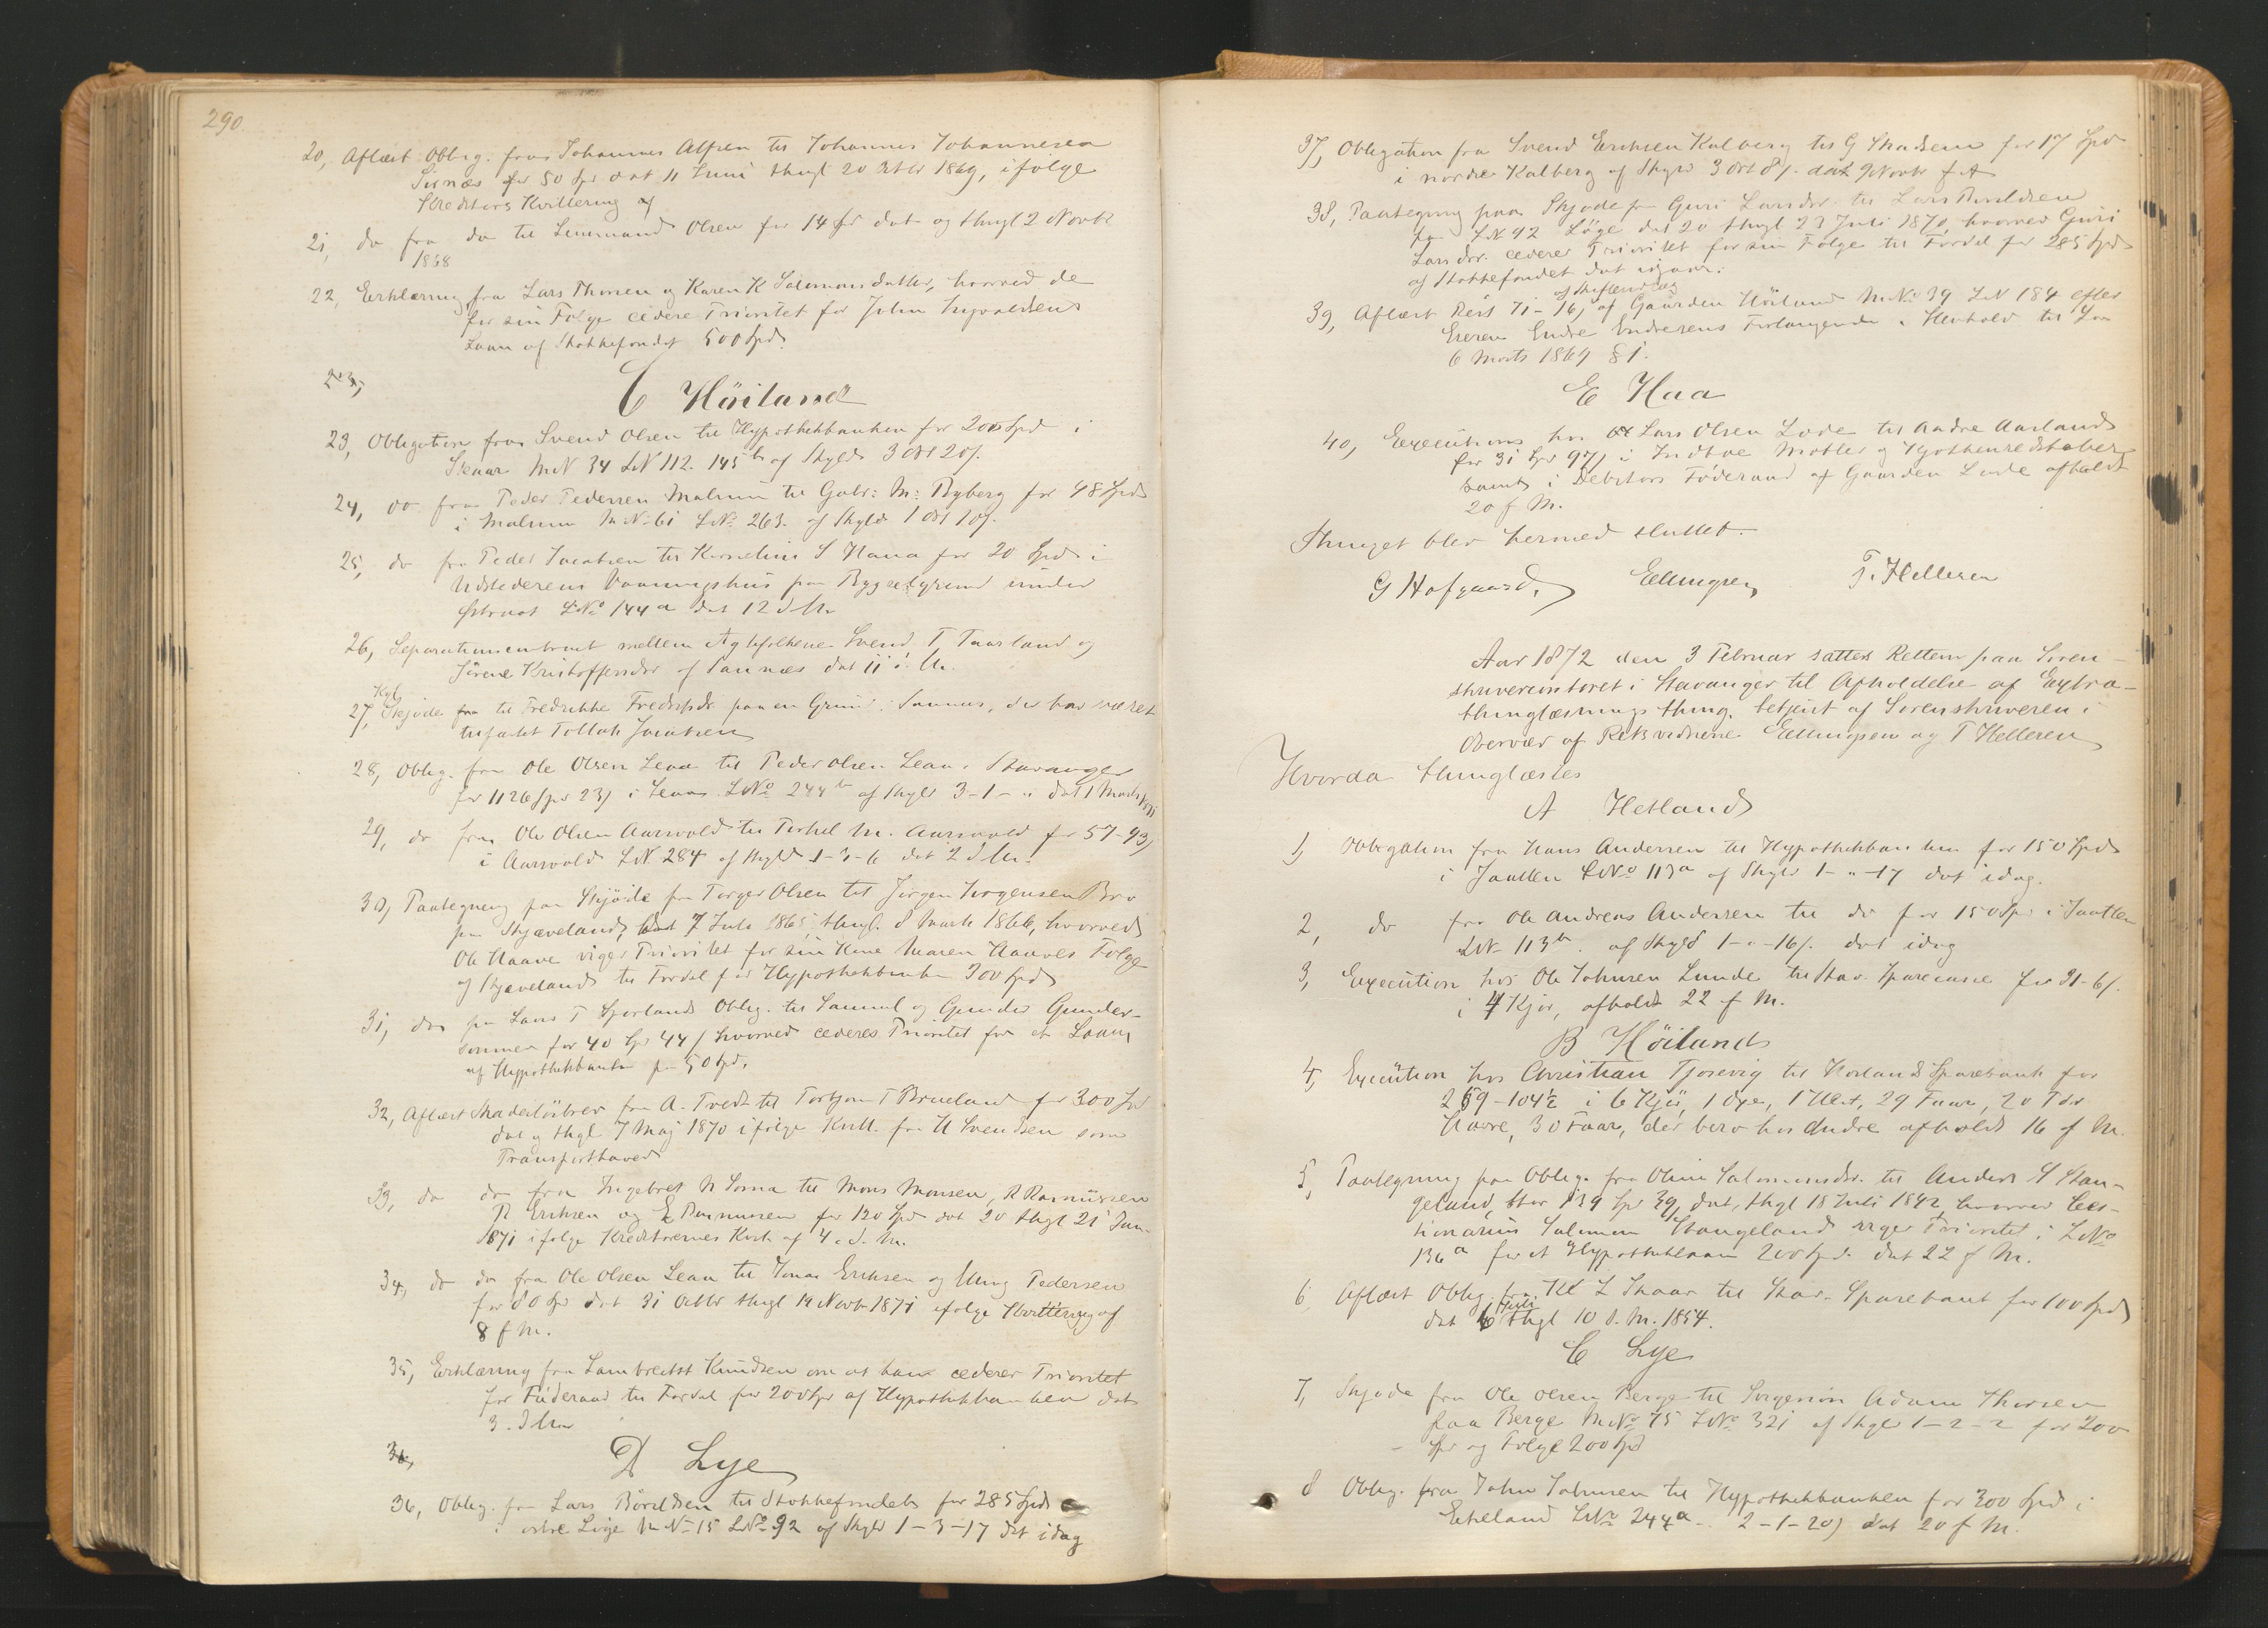 290.
20, Aflæst Oblig. fra Johannes Alfsen til Johannes Johannesen
Sirnæs for 50 Spd dat 11 Juni thngl 20 1869, ifølge
Kreditors Kvittering af
21, do fra do til Lensmand Olsen for 14 Spd dat og thngl 2 Novbr
1868
22, Erklæring fra Lars Thorsen og Karen K Salomonsdatter, hvorved de
for sin Følge cedere Prioritet for John Ingvaldsens
Laan af Stokkefondet 500 Spd.
23,
C Höiland
23, Obligation fra Svend Olsen til Hypothekbanken for 200 Spd i
MN 34 LN 112. 145 b af Skyld 3 Ort 20 ſ.
24, do fra Peder Pedersen Malmin til Gabr: M: Ryberg for 48 Spd
i Malmin MN: 61 LN: 263. af Skyld 1 Ort 10 ſ.
25, do fra Peder Jacobsen til Kornelius S Hana for 20 Spd i
Udstederens Vaaningshus paa Bygselgrund under
LNo 144 a dat 12 d. M.
26, Separationscontract mellem Ægtefolkene Svend T Taarland og
Sörene Kristoffersdr af Sannæs dat 11 d. M.
Kgl
27, Skjøde fra til Fredrikke Fredriksdr paa en Grund i Sannæs, der har været
tilfæstet Tollak Jacobsen
28, Oblig. fra Ole Olsen Leaa til Peder Olsen Lean i Stavanger
for 1126 Spd 23 ſ i Leaas LNo 244 b af Skyld 3-1-" dat 1 Marts 1871
29, do fra Ole Olsen Aarsvold til Terkel M. Aarsvold for 57-93 ſ
i Aarsvold LN. 284 af Skyld 1-3-6 dat 2 d. M.
30, Paategning paa Skjöde fra Torger Olsen til Jörgen Jörgensen Bro
paa Skjæveland, dat 7 Juli 1865, thngl. 8 Marts 1866, hvorved
Ole Haave viger Prioritet for sin Kone Maren Haaves Følge
af Skjæveland til Fordel for Hypothekbanken 300 Spd
31, do paa Lars T Oblig. til Samuel og Gunder Gunder-
sönner for 40 Spd 44 ſ hvorved cederes Prioritet for et Laan
af Hypothekbanken paa 50 Spd.
32, Aflæst Skadeslösbrev fra A. Tvedt til Torbjørn T Brueland for 300 Spd
dat og thgl 7 Maj 1870 ifølge Kvitt. fra H Svendsen som
Transporthaver
33, do do fra Ingebret N Soma til Mons Monsen, R Rasmussen
R Eriksen og E Rasmussen for 120 Spd dat 20 thgl 21 Jan.
1871 ifølge Kreditorernes Kvit. af 4. d. M.
34, do do fra Ole Olsen Lean til Jonas Eriksen og Pedersen
for 80 Spd dat 31 Octbr thgl 14 Novbr 1871 ifølge Kvittering af
8 f M.
35, Erklæring fra Lambrecht Knudsen om at han cederer Prioritet
for Föderaad til Fordel for 200 Spd af Hypothekbanken dat
3. d. M
36,
D Lye
36, Oblig. fra Lars Börildsen til Stokkefondet for 285 Spd
i östre Löge MN: 15 LNo 92 af Skyld 1-3-17 dat idag
37, Obligation fra Svend Eriksen Kalberg til G Madsen for 17 Spd
i nordre Kalberg af Skyld 3 Ort 8 ſ. dat 9 Novbr f. A
38, Paategning paa Skjøde fra Guri Larsdr. til Lars Börildsen
paa LN 92 Löge dat 20 thngl 23 Juli 1870, hvorved Guri
Larsdr. cederer Prioritet for sin Følge til Fordel for 285 Spd
af Stokkefondet dat idag.
39, Aflæst Reis 71-76, af Gaarden Höiland MNo 39 LN 184 efter
Eieren Endre Endresens Forlangende i Henhold til Lov
6 Marts 1869 § 1.
E Haa
40, Execution hos Lars Olsen Lode til Andre Aarland
for 31 Spd 97 ſ i Indboe Möbler og Kjøkkenredskaber
samt i Debitors Föderaad af Gaarden Lode afholdt
20 f M.
Thinget blev hermed sluttet.
G Hofgaard. Ellingsen T. Helleren
Aar 1872 den 3 Februar sattes Retten paa Soren-
skrivercontoret i Stavanger til Afholdelse af Extra-
thinglæsnings thing, betjent af Sorenskriveren i
Overvær af Retsvidnerne Ellingsen og T Helleren
Hvorda thinglæstes
A Hetland
1, Obligation fra Hans Andersen til Hypothekbanken for 150 Spd
i Jaatten LNo 113 a af Skyld 1-"-17 dat idag.
2, do fra Ole Andreas Andersen til do for 150 Spd i Jaatten
LN 113 b. af Skyld 1-"-16 ſ. dat idag
3, Execution hos Ole Johnsen Lunde til Stav. Sparecasse for 31-6 ſ.
i 4 Kjör, afholdt 22 f M.
B Höiland
4, Execution hos Christian Tjosevig til Høilands Sparebank for
269-104½ i 6 Kjör, 1 Oxe, 1 Hest, 29 Faar, 20 Tdr
Havre, 30 Faar, der bero hos Andre afholdt 16 f M.
5, Paategning paa Oblig. fra Olene Salomonsdr. til Anders S Stan-
geland, stor 139 Spd 39, dat, thgl 18 Juli 1842, hvorved Ces-
tionarius Salomon Stangeland viger Prioritet i LNo
136 a for et Hypotheklaan 200 Spd. dat 22 f M.
6, Aflæst Oblig. fra Skaar til Stav. Sparebank for 100 Spd
dat 6 Juli thgl 10 s. M. 1854.
C Lye
7, Skjøde fra Ole Olsen Berge til Svigersøn Adam Thorsen
paa Berge MNo 75 LNo 321 af Skyld 1-2-2 for 200
Spd og Følge 200 Spd
8 Oblig. fra John Johnsen til Hypothekbanken for 300 Spd i
Eikeland LNo 244 a - 2-1-20 ſ dat 20 f M.